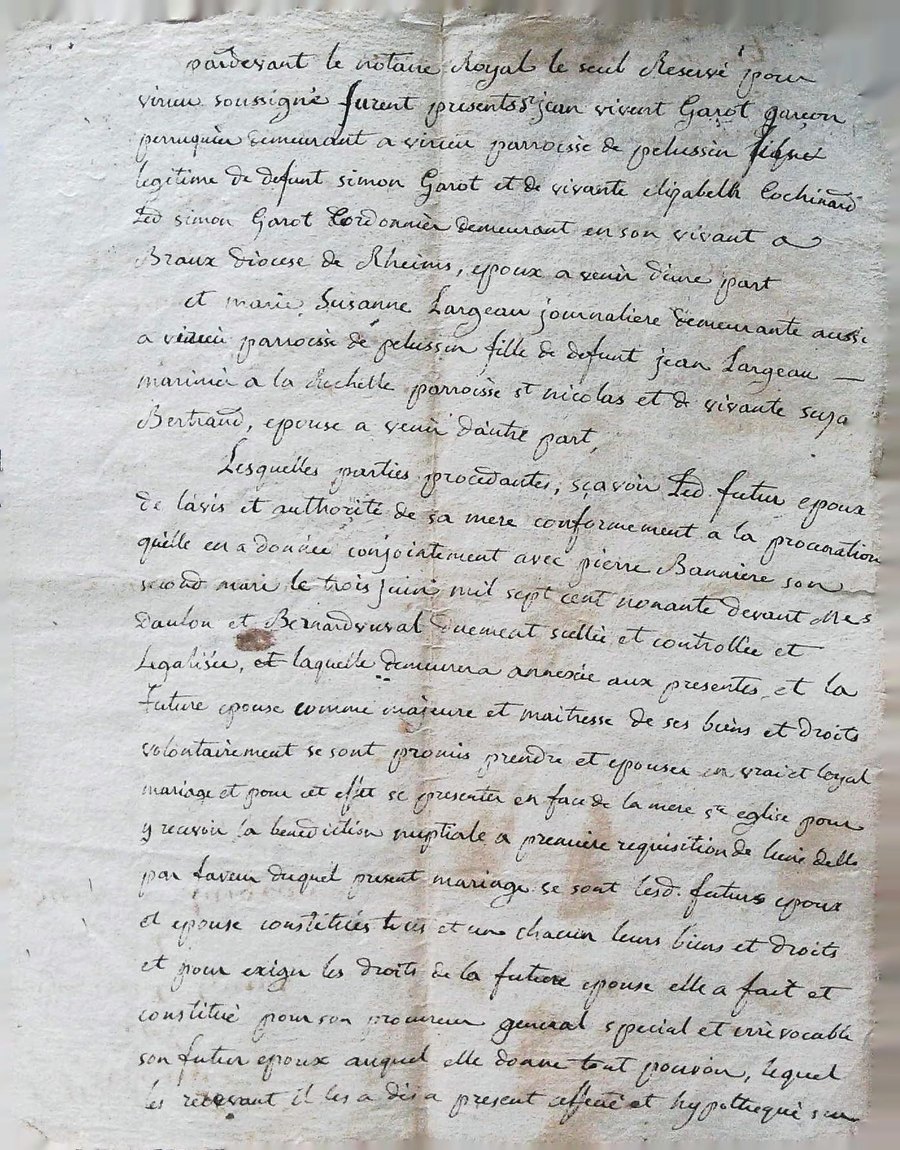 pardevant le notaire Royal le seul Reservé pour
virieu soussigné furent presents sr jean vivent Garot garcon
perruquier demeurant a virieu parroisse de pelussin
legitime de defunt simon Garot et de vivante elizabeth Cochinard
Led simon Garot Cordonnier demeurant en son vivant a
Braux diocese de Rheims, epoux a venir d'une part
et marie Susanne Largeau journaliere demeurante aussi
a virieu parroisse de pelussin fille de defunt jean Largeau —
marinier a la Rochelle parroisse st nicolas et de vivante
Bertrand, epouse a venir d'autre part,
Lesquelles parties procedantes, sçavoir Led. futur epoux
de lavis et authorité de sa mere conformement a la procuration
qu'elle en a donnée conjointement avec pierre Banniere son
second mari le trois juin mil sept cent nonante devant Mes
daulon et Bernard duement scellée et controllée et
Legalisée, et laquelle demeurera annexée aux presentes et la
future epouse comme majeure et maitresse de ses biens et droits
volontairement se sont promis prendre et epouser en vrai et loyal
mariage et pour cet effet se presenter en face de la mere ste eglise pour
y recevoir la benediction nuptiale a premiere requisition de lune delle
par faveur duquel present mariage se sont lesd. futurs epoux
et epouse constitués tous et un chacun leurs biens et droits
et pour exiger les droits de la future epouse elle a fait et
constitué pour son procureur general special et irrevocable
son futur epoux auquel elle donne tout pouvoir, lequel
les recevant il les a des a present affecté et hypothequé sur